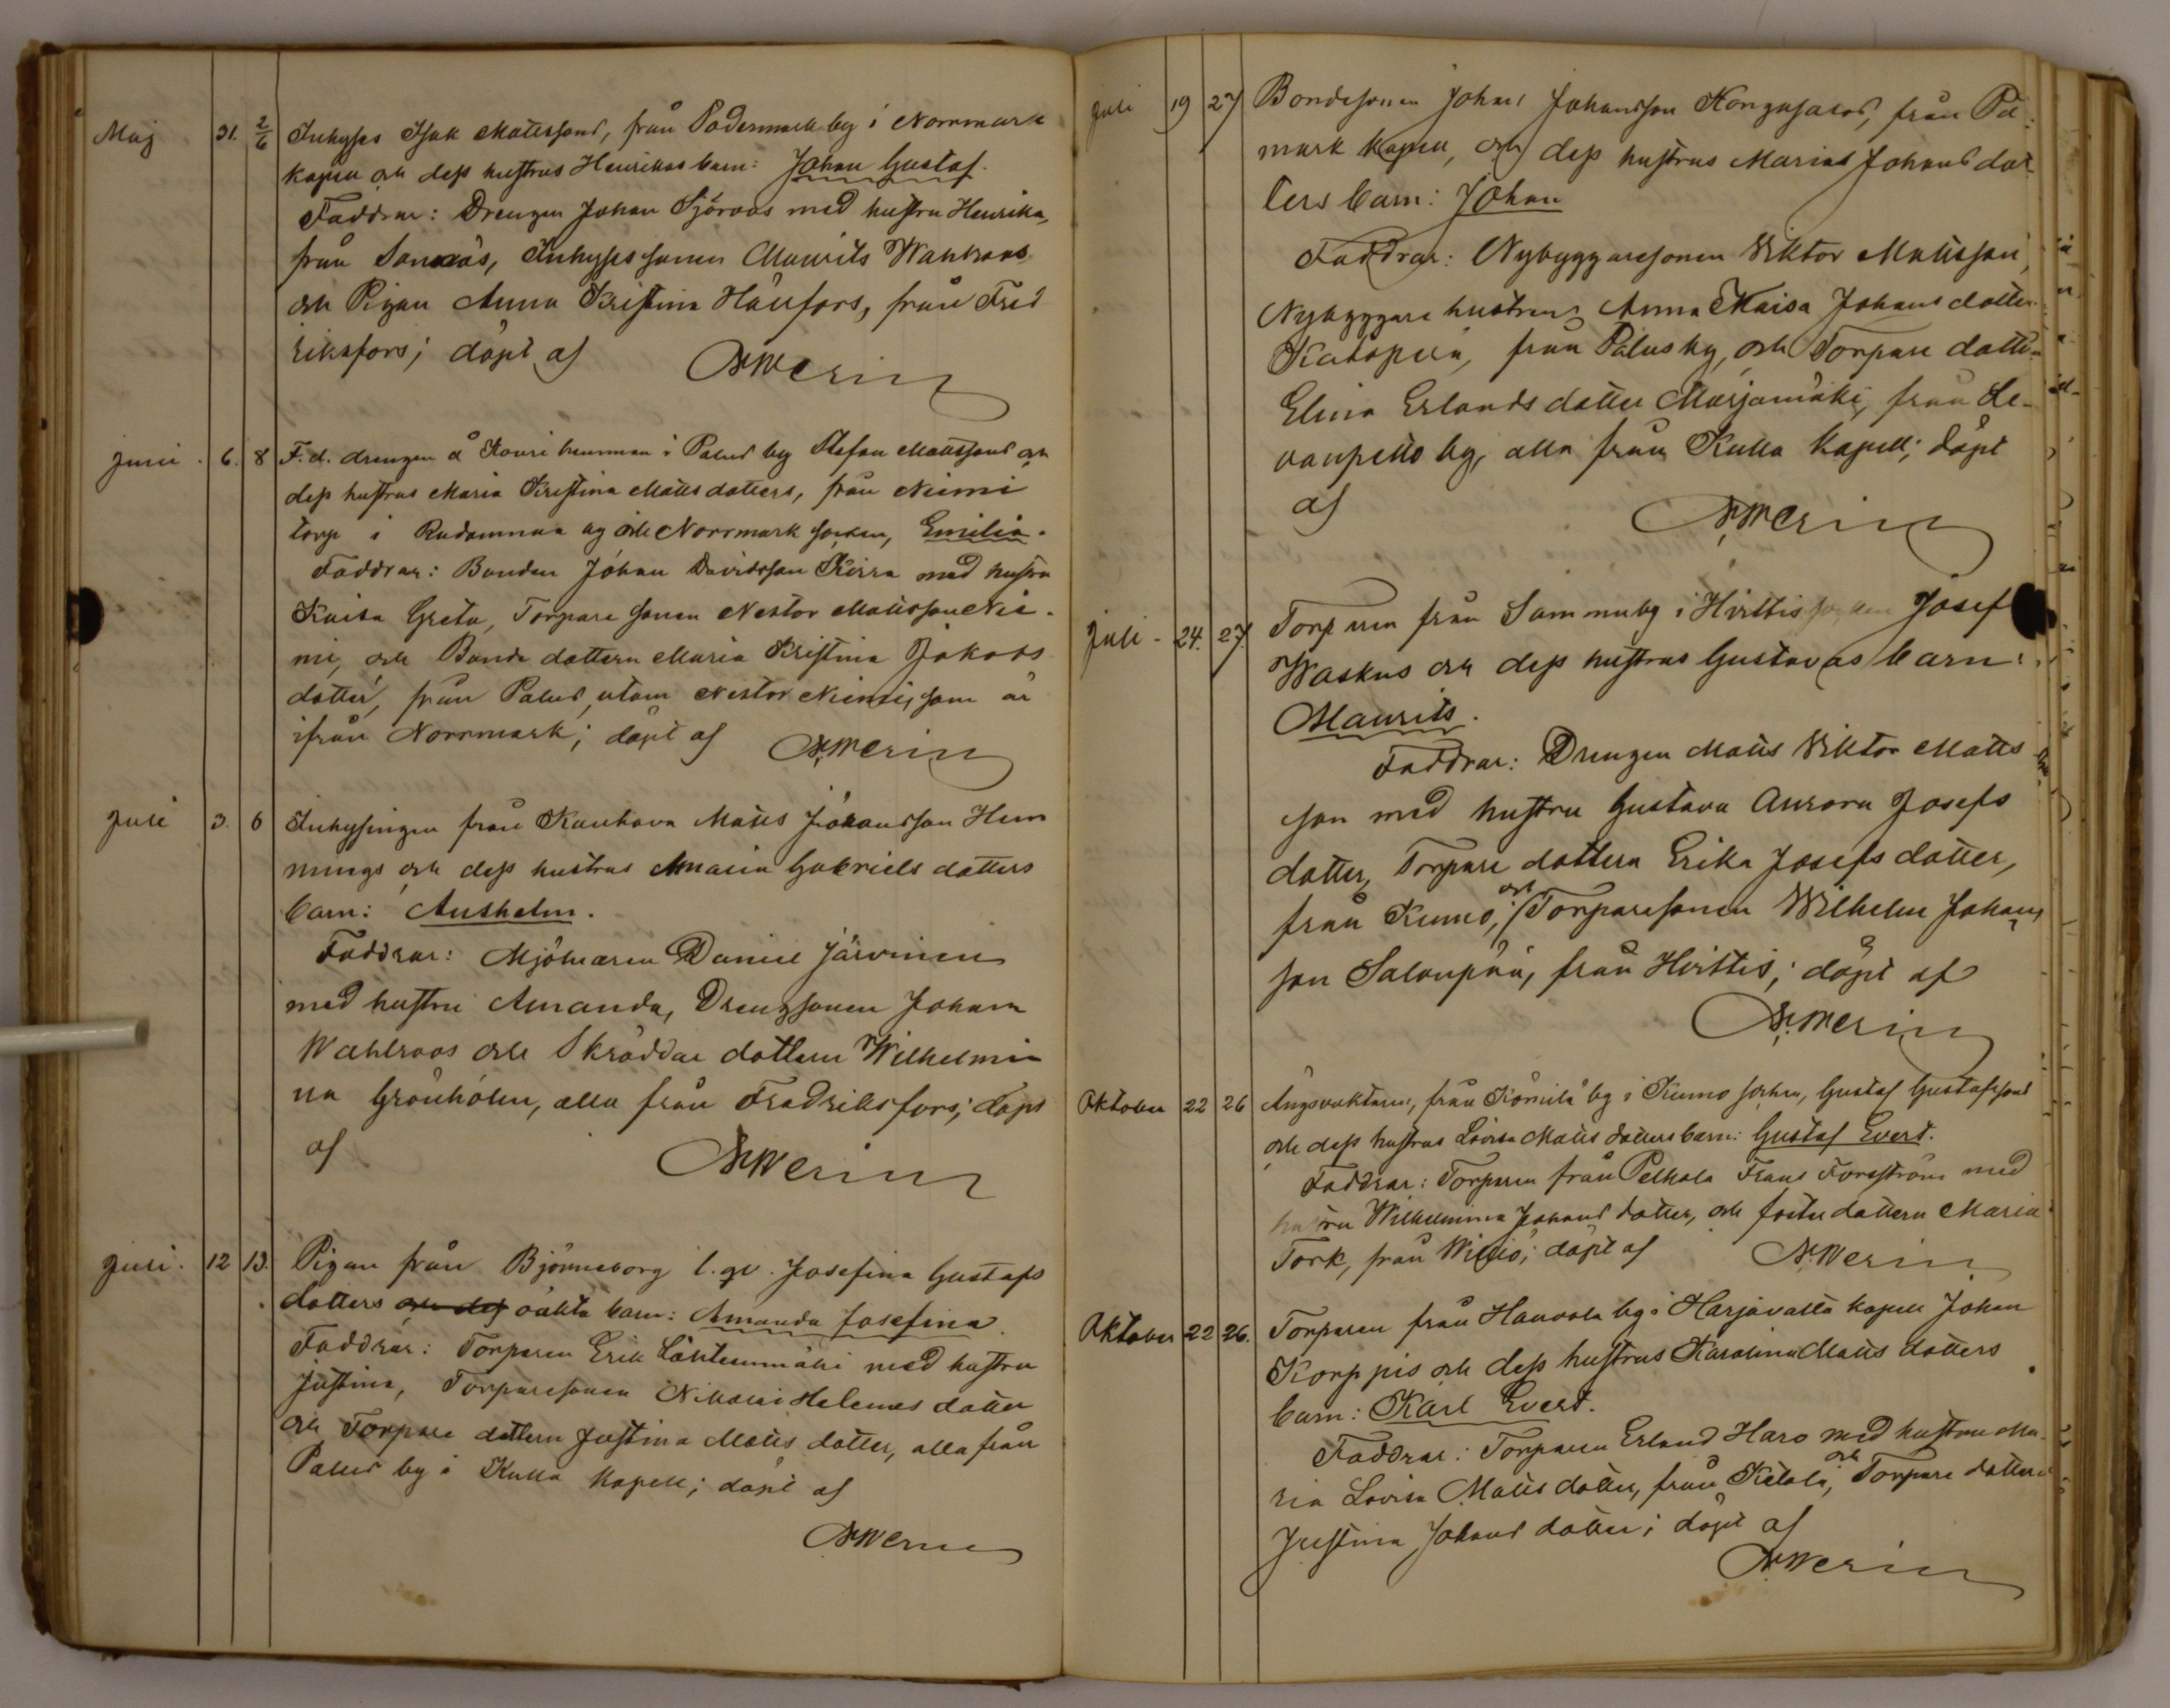 Maj 31. 2/6 Inhyses Isak Mattssons, från Påckmark by i Norrmark
kapell och dess hustrus Henrikas barn: Johan Gustaf.
Faddrar: Drengen Johan Sjöroos med hustru Henrika,
från Sannäs, Inhysessonen Maurits Wahlroos
och Pigan Anna Kristina Hänfors, från Fred
riksfors; döpt af
N. Merin
Juni 6. 8 F.d. drengen å Kouri hemman i Palus by Stefan Mattssons och
dess hustrus Maria Kristina Matts dotters, från Niemi
torp i Rudanmaa by och Norrmark socken, Emilia.
Faddrar: Bonden Johan Davidsson Kirra med hustru
Kaisa Greta, Torpare sonen Nestor Mattsson Nie-
mi, och Bonde dottern Maria Kristina Jakobs
dotter, från Palus, utom Nestor Niemi, som är
ifrån Norrmark; döpt af N. Merin
Juli 3. 6 Inhysingen från Kauhava Matts Johansson Hem
mings och dess hustrus Maria Gabriels dotters
barn: Anshelm.
Faddrar: Mjölnaren Daniel Järvinen
med hustru Amanda, Drengsonen Johan
Wahlroos och Skräddar dottern Wilhelmi
na Grönholm, alla från Fredriksfors; döpt
af
N. Merin
Juli. 12 13. Pigan från Björneborg l. gv. Josefina Gustafs
dotters och dess oäkta barn: Amanda Josefina.
Faddrar: Torparen Erik Lähteenmäki med hustru
Justina, Torparesonen Nikolai Helenas dotter
och Torpare dottern Justina Matts dotter, alla från
Palus by i Kulla Kapell; döpt af
N. Merin
Juli 19 27 Bondesonen Johan Johansson Kongasaros, från På
mark kapell, och dess hustrus Marias Johans dot
ters barn: Johan
Faddrar: Nybyggaresonen Viktor Mattsson,
Nybyggare hustrun Anna Kaisa Johans dotter
Katapää, från Palus by, och Torpare dottern
Elina Erlands dotter Marjamäki, från Le-
vanpelto by, alla från Kulla Kapell; döpt
af
N. Merin
Juli - 24. 27. Torparen från Sammu by i Hvittis socken Josef
Waskus och dess hustrus Gustavas barn:
Maurits.
Faddrar: Drengen Matts Viktor Matts
son med hustru Gustava Aurora Josefs
dotter, Torpare dottern Erika Josefs dotter,
från Kumo, och Torparesonen Wilhelm Johans
son Salonpää, från Hvittis; döpt af
N. Merin
Oktober 22 26 Ängsvaktaren, från Kömilä by i Kumo socken, Gustaf Gustafssons
och dess hustrus Lovisa Matts dotters barn: Gustaf Evert.
Faddrar: Torparen från Pelkola Frans Forsström med
hustru Wilhelmina Johans dotter, och foster dottern Maria
Tork, från Wittiö; döpt af N. Merin
Oktober 22 26. Torparen från Hanvola by i Harjavalta kapell Johan
Korppis och dess hustrus Karolina Matts dotters
barn: Karl Evert.
Faddrar: Torparen Erland Haro med hustru Ma-
ria Lovisa Matts dotter, från Ketola, och Torpare dottern
Justina Johans dotter; döpt af
N. Merin